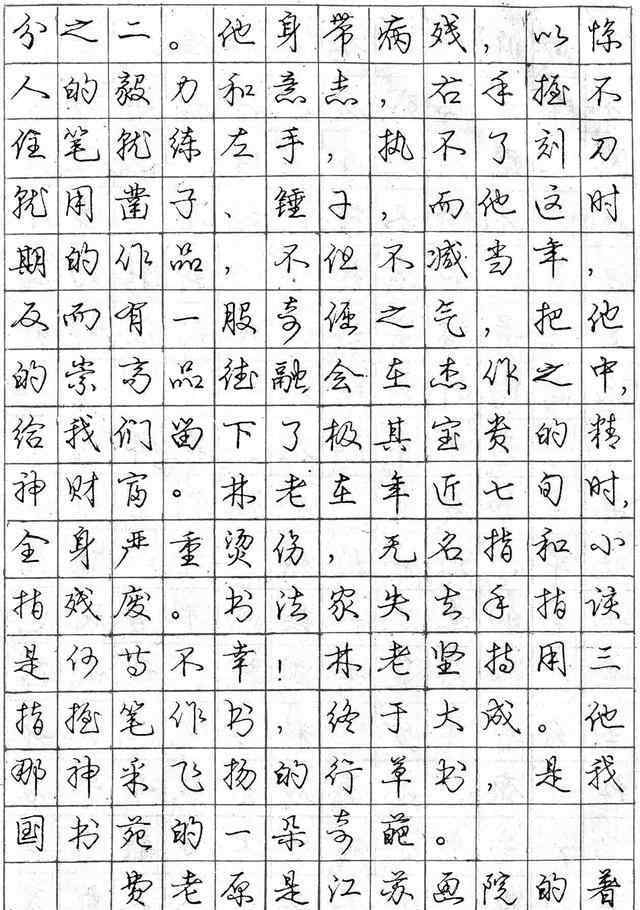 分之二。他身带病残，以惊
人的毅力和意志，右手握不
住笔就练左手，执不了刻刀
就用凿子、锤子，而他这时
期的作品，不但不减当年，
反而有一股奇倔之气，把他
的崇高品德融会在杰作之中，
给我们留下了极其宝贵的精
神财富。林老在年近七旬时，
全身严重烫伤，无名指和小
指残废。书法家失去手指该
是何等不幸！林老坚持用三
指握笔作书，终于大成。他
那神采飞扬的行草书，是我
国书苑的一朵奇葩。
费老原是江苏画院的著